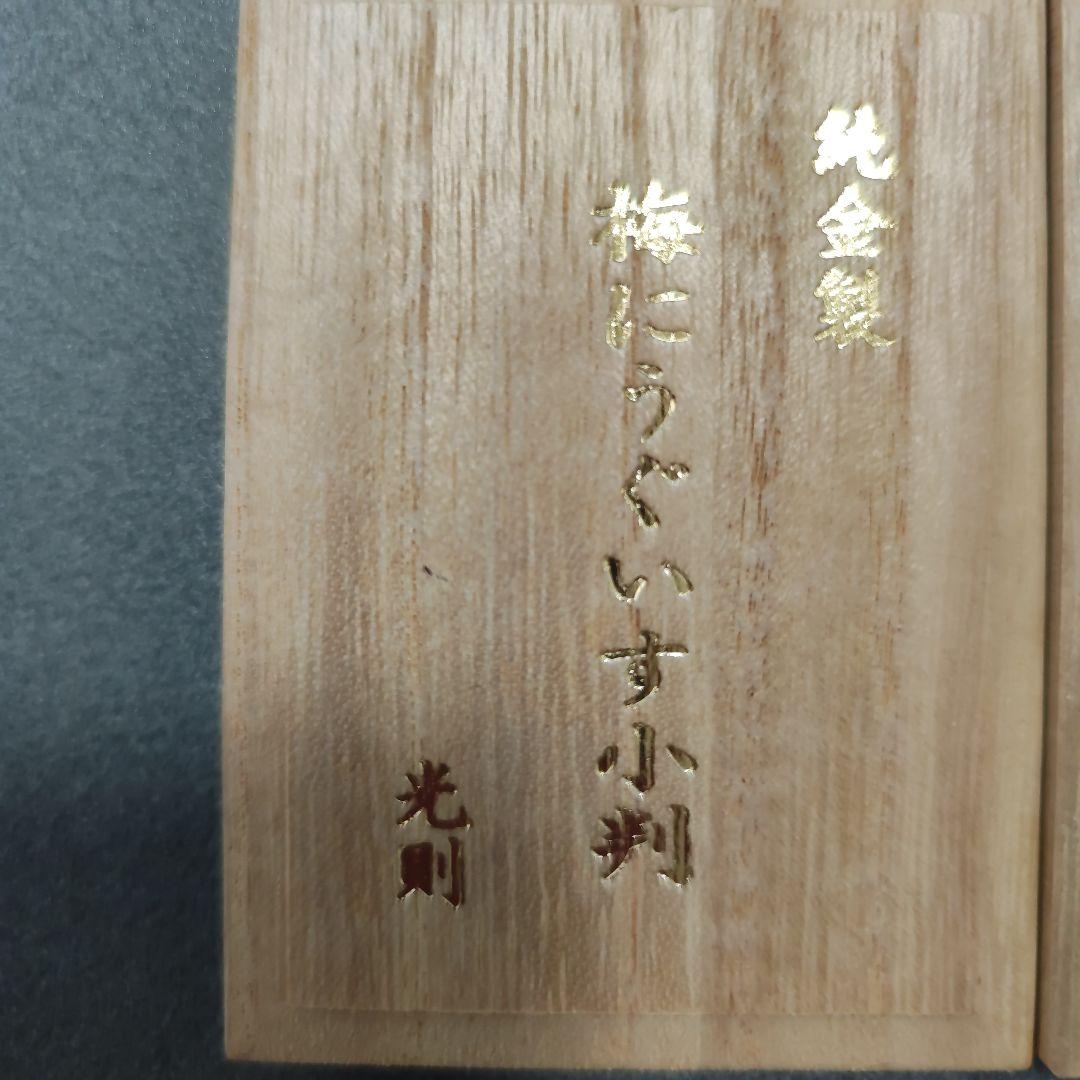 純金製
梅にうぐいす小判
光則